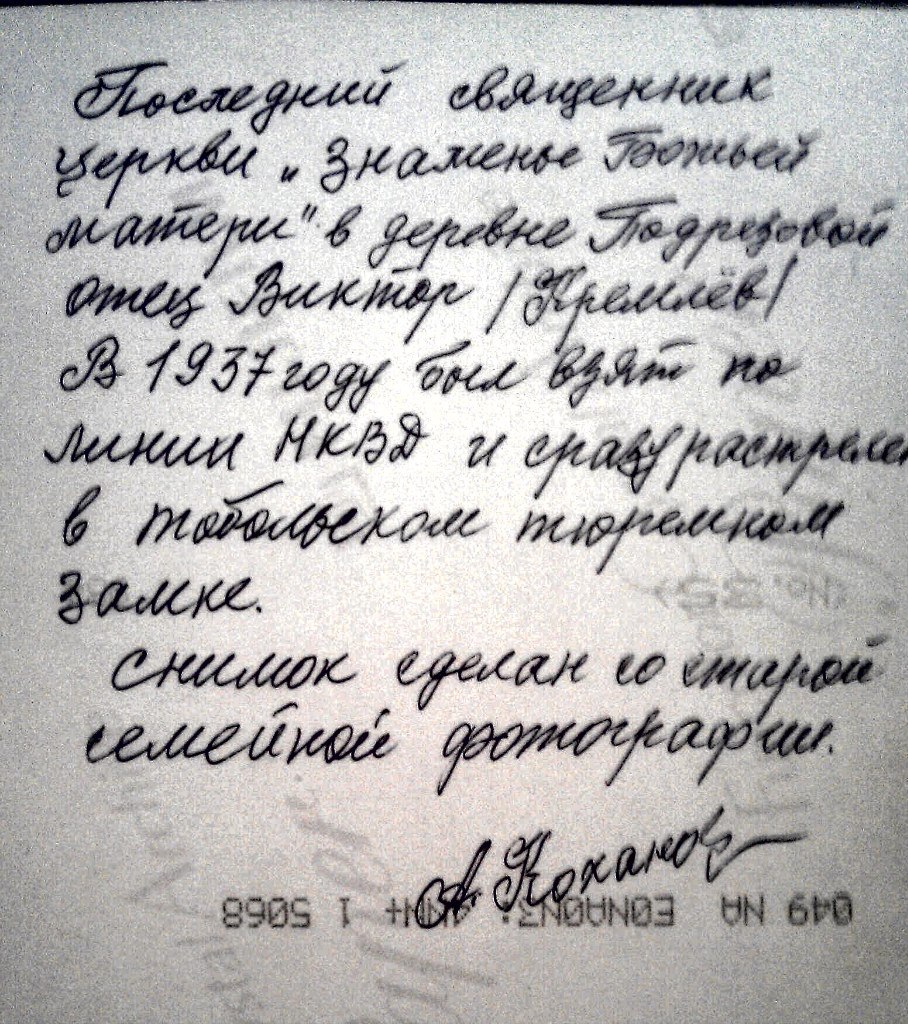 Последний священник
церкви „Знаменье Божьей
матери" в деревне Подрезовой
отец Виктор /Кремлёв/
В 1937 году был взят по
линии НКВД и сразу растрелен
в тобольском тюремном
замке.
Снимок сделан со старой
семейной фотографии.
А. Коханов
049 NA E0NA0N3. 4NN+ 1 5068